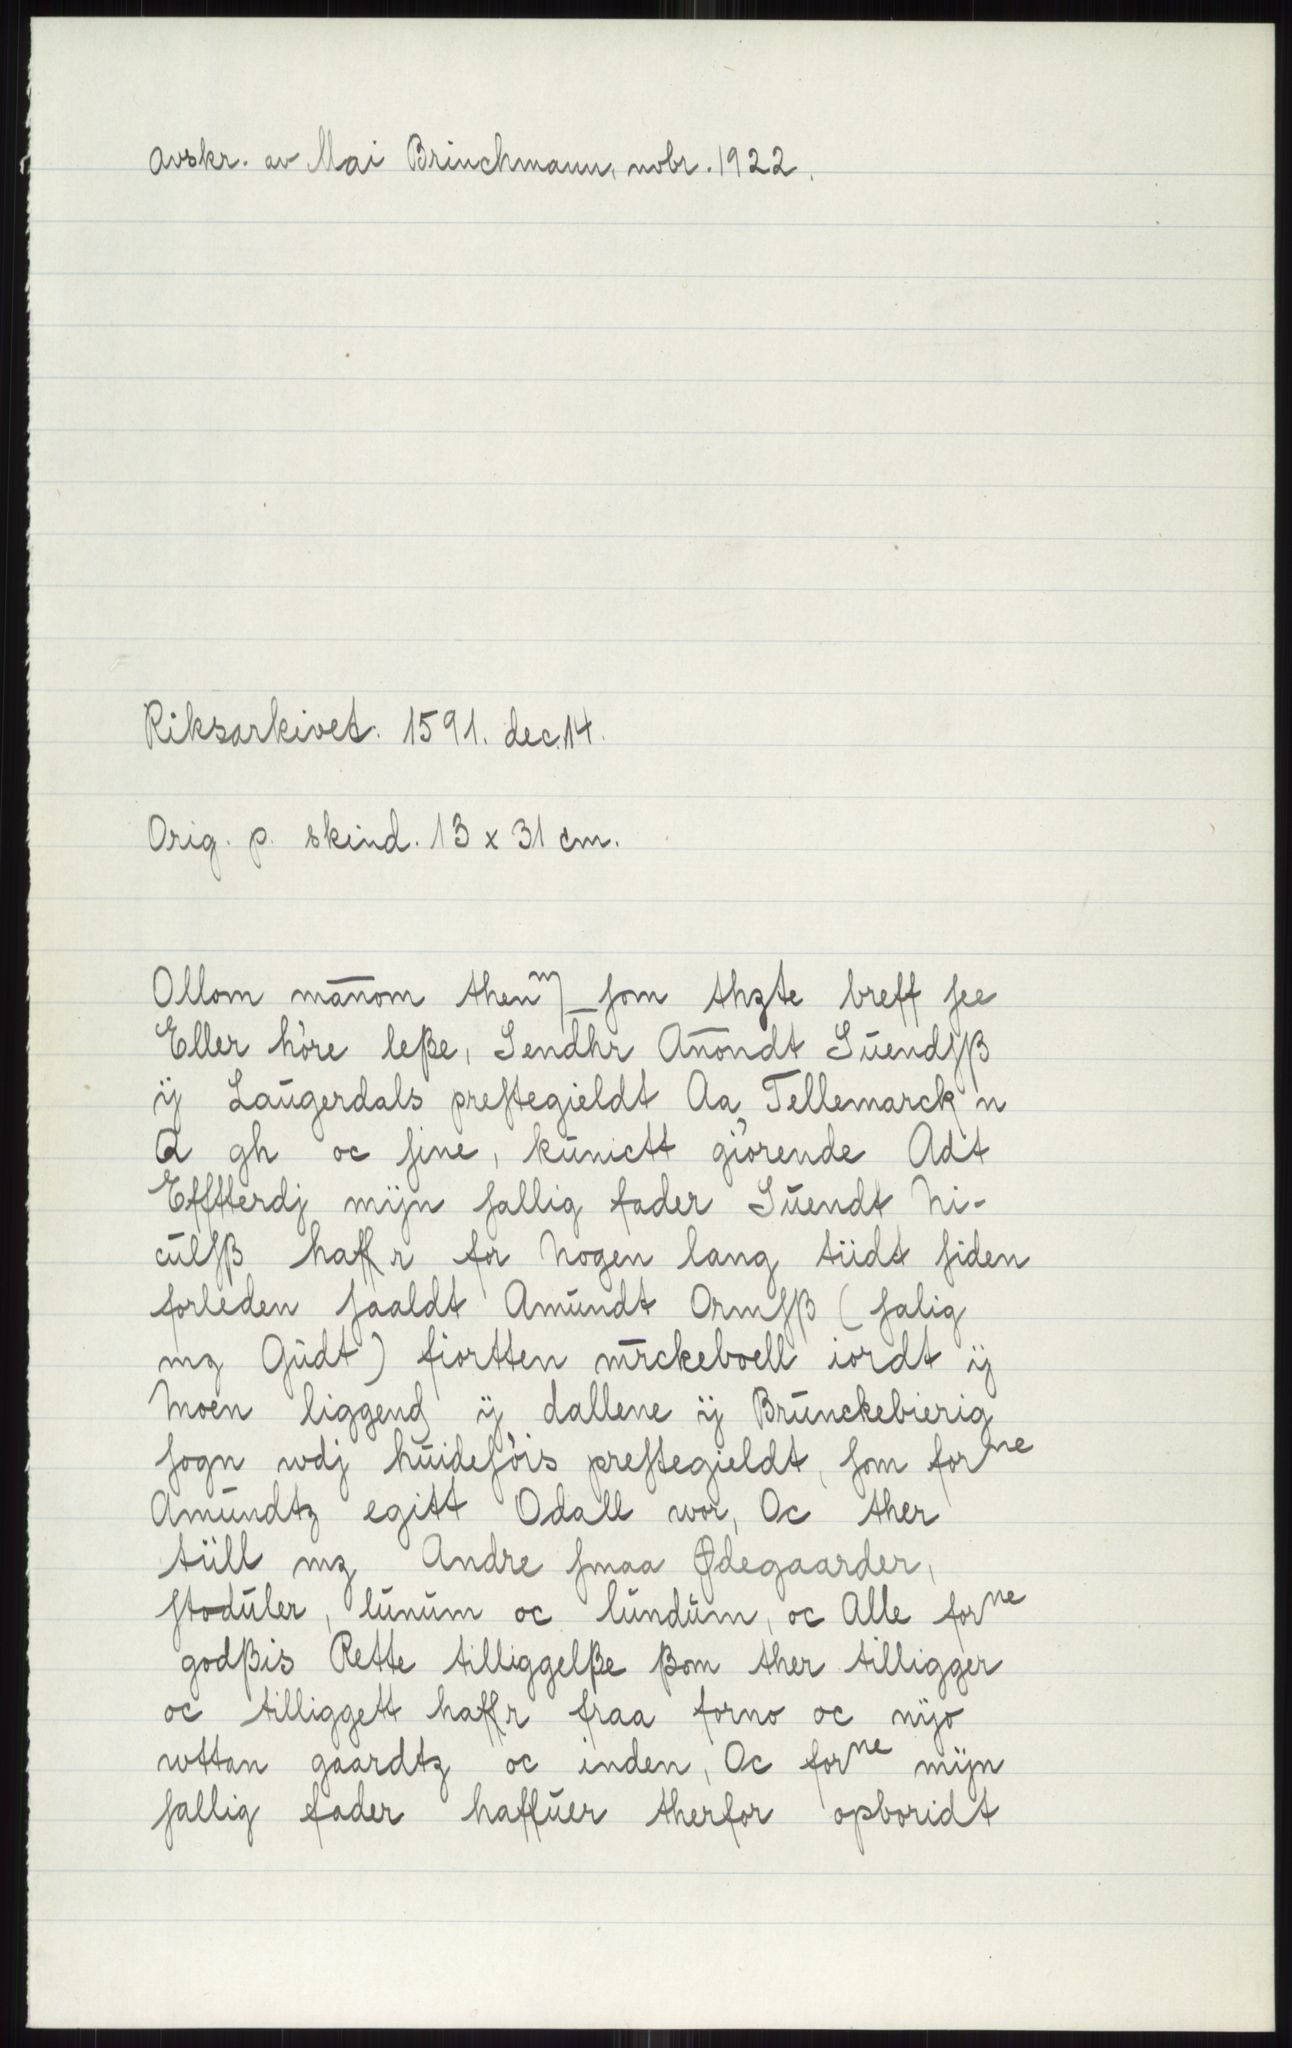 avskr. av Mai Brinchmann, nvbr. 1922.
Riksarkivet. 1591. dec. 14.
Orig. p. skind. 13 x 31 cm.
Ollom man̄om then som thꝫte breff see
Eller höre leße, Sendhr An̄ondt Sŭendsß
ÿ Laŭgerdals prestegieldt Aa Tellemarck n
Q gh oc sine, kŭnictt giörende Adt
Effterdj mÿn sallig fader Sŭendt Ni-
cŭlsß haffr for Nogen lang tiidt siden
forleden saaldt Amŭndt Ormsß (salig
mꝫ Gŭdt) fiortten mrckeboell iordt ÿ
Moen liggend ÿ dallene ÿ Brŭnckebierig
sogn wdj hŭidesöis prestegieldt, som forne
Amŭndtꝫ egitt Odall wor, Oc ther
tiill mꝫ Andre smaa Ødegaarder,
stodŭler, lŭnŭm oc lŭndŭm, oc Alle forne
godßis Rette tilliggelße ßom ther tilligger
oc tilliggett haffr fraa forno oc nÿo
wttan gaardtꝫ oc inden, Oc forne mÿn
sallig fader haffŭer therfor opboridt